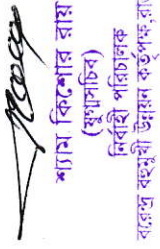 শ্যাম কিশোর রায়
(যুগ্মসচিব)
নির্বাহী পরিচালক
বরেন্দ্র বহুমুখী উন্নয়ন কর্তৃপক্ষ, রাজ